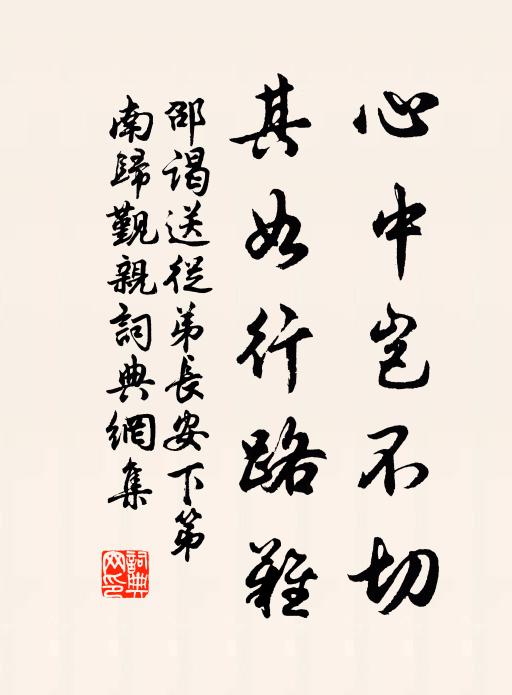 心中岂不切
其如行路難
邵谒送從弟長安下第
南歸觐親詞典網集
詞典网印